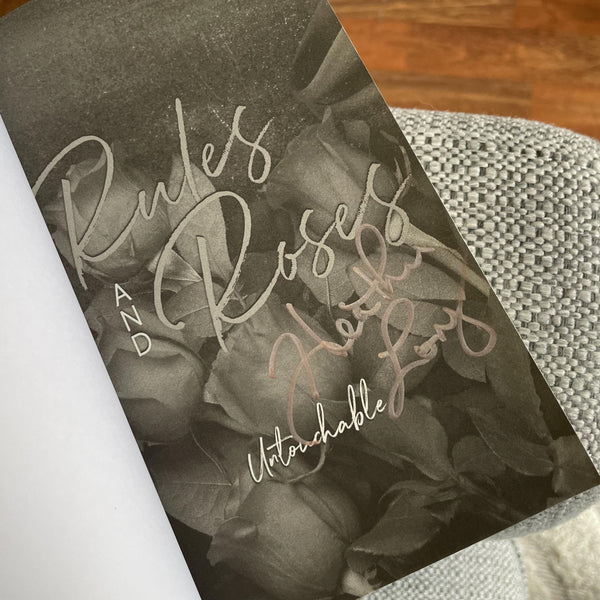 Rules
AND
Roses
Heather
Long
Untouchable